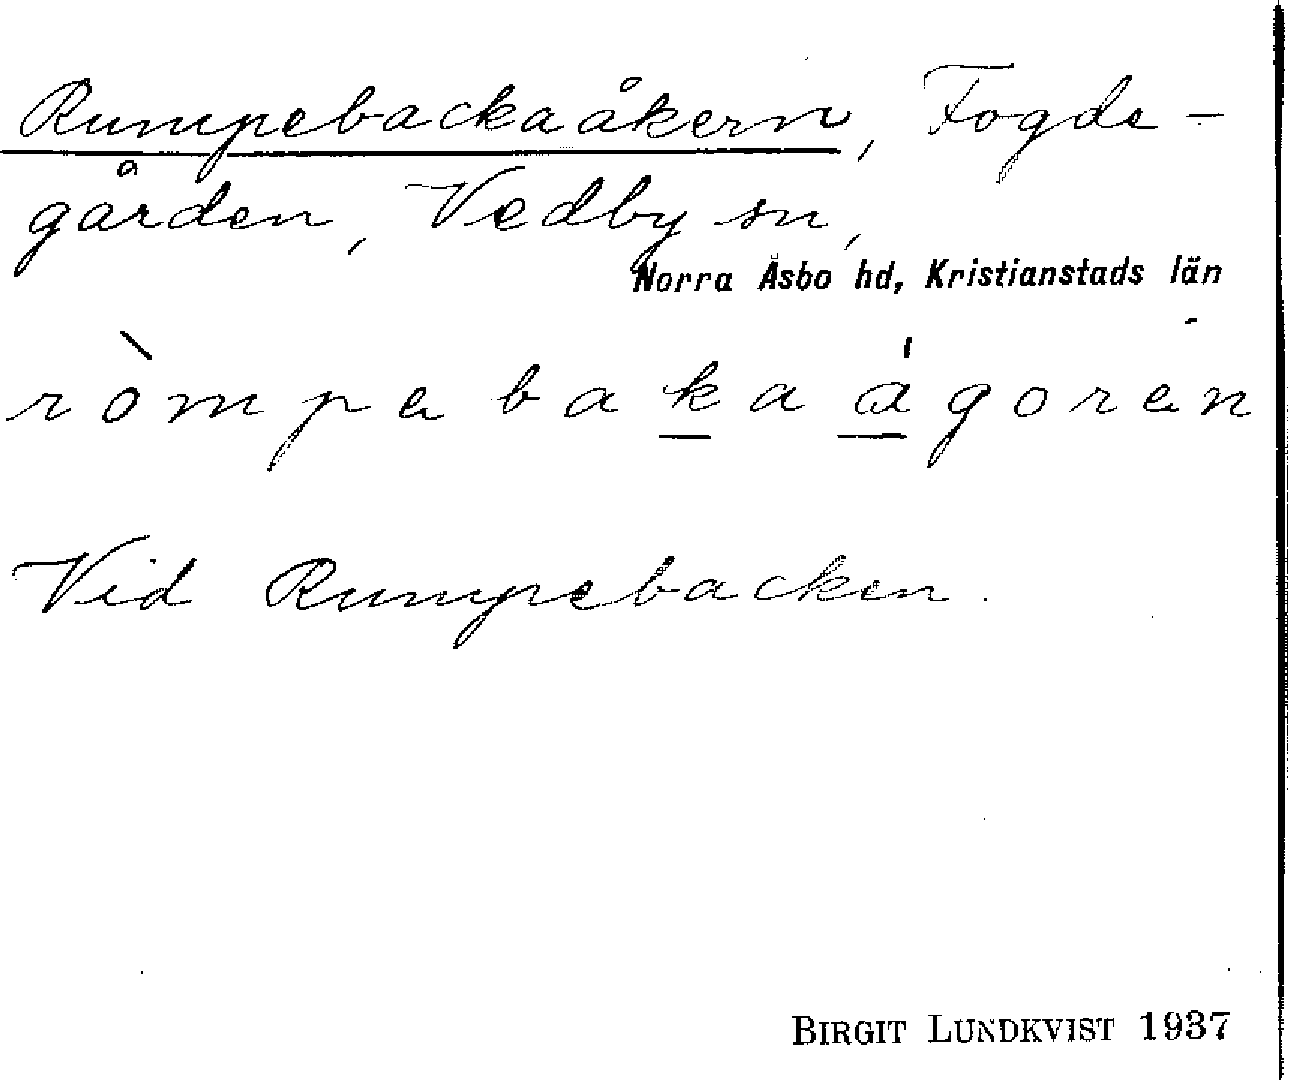 Rumpebackaåkern, Fogde-
gården, Vedby sn,
Norra Åsbo hd, Kristianstads län
ròmpabakaágoran
Vid Rumpebacken.
BIRGIT LUNDKVIST 1937